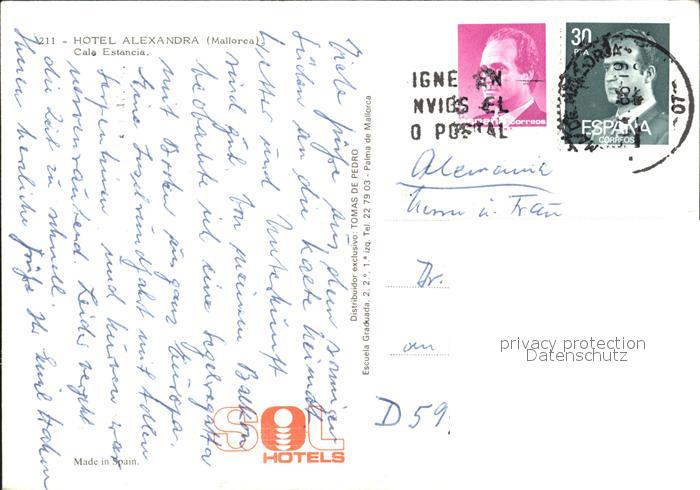 211 - HOTEL ALEXANDRA (Mallorca)
Cala Estancia.
Viele Grüße aus dem sonnigen
Süden an die kalte Heimat.
Wetter und Unterkunft
sind gut. Von meinem Balkon
beobachte ich eine Segelregatta
mit Booten aus ganz Europa.
Eine Inselrundfahrt mit tollen
Serpentinen und Kurven war
nervenraubend. Leider vergeht
die Zeit zu schnell.
herzliche Grüße Ihr Emil
Made in Spain.
SOL
HOTELS
Distribuidor exclusivo: TOMAS DE PEDRO
Escuela Graduada, 2, 2.º, 1.ª izq. Tel. 22 79 03 - Palma de Mallorca
IGNE EN
NVIOS EL
O POSTAL
ESPAÑA correos
30
PTA
ESPAÑA
CORREOS
07
Alemania
Herrn u. Frau
Dr.
an
D 59
privacy protection
Datenschutz